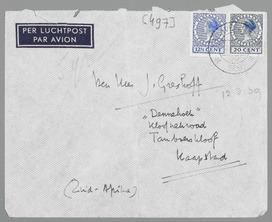 PER LUCHTPOST
PAR AVION
[497]
12½ CENT
20 CENT
den Heer J. Greshoff
"Dennehoek"
Kloofnekroad
Tamboerskloof
Kaapstad
(Zuid-Afrika)